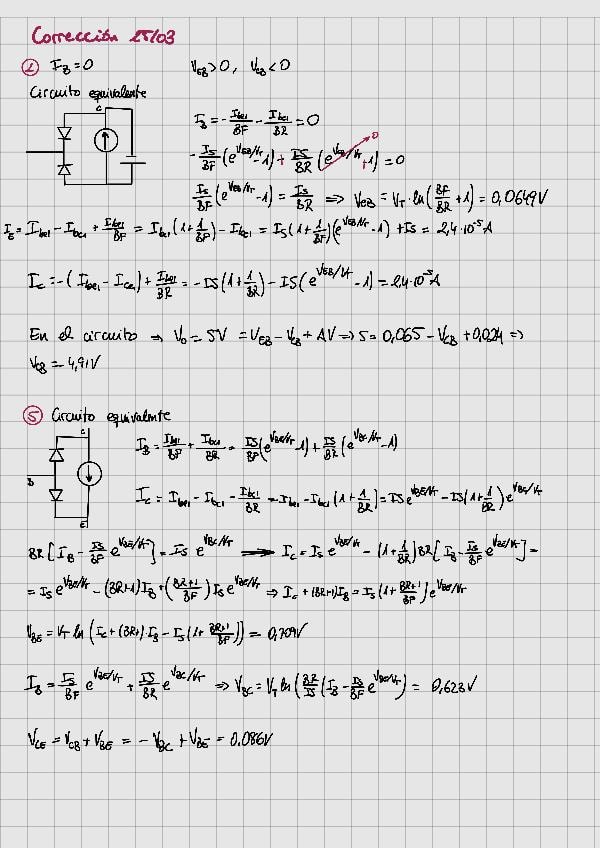 Corrección 25/03
① I_B=0 V_EB>0, V_CB<0
Circuito equivalente
C
I_B = - I_be1/BF - I_bc1/BR = 0
- IS/BF (e^{V_EB/V_T} - 1) + IS/BR (e^{V_CB/V_T} + 1) = 0
0
IS/BF (e^{V_EB/V_T} - 1) = IS/BR ⇒ V_EB = V_T · ln(BF/BR + 1) = 0,0649V
I_E = I_be1 - I_bc1 + I_be1/BF = I_be1(1 + 1/BF) - I_bc1 = IS(1 + 1/BF)(e^{V_EB/V_T} - 1) + IS = 2,4·10^{-5}A
I_C = -(I_be1 - I_Ce1) + I_be1/BR = -IS(1 + 1/BR) - IS(e^{V_EB/V_T} - 1) = -2,4·10^{-5}A
En el circuito ⇒ V_0 = 5V = V_EB - V_CB + AV ⇒ 5 = 0,065 - V_CB + 0,024 ⇒
V_CB = -4,91V
⑤ Circuito equivalente
C
B
E
I_B = I_be1/BF + I_bc1/BR = IS/BF (e^{V_BE/V_T} - 1) + IS/BR (e^{V_BC/V_T} - 1)
I_C = I_be1 - I_bc1 - I_bc1/BR = I_be1 - I_bc1(1 + 1/BR) = IS e^{V_BE/V_T} - IS(1 + 1/BR) e^{V_BC/V_T}
BR[I_B - IS/BF e^{V_BE/V_T}] = IS e^{V_BC/V_T} ⟹ I_C = IS e^{V_BE/V_T} - (1 + 1/BR)BR[I_B - IS/BF e^{V_BE/V_T}] =
= IS e^{V_BE/V_T} - (BR+1)I_B + (BR+1/BF) IS e^{V_BE/V_T} ⇒ I_C + (BR+1)I_B = IS(1 + BR+1/BF) e^{V_BE/V_T}
V_BE = V_T ln(I_C + (BR+1)I_B - IS(1 + BR+1/BF)) = 0,709V
I_B = IS/BF e^{V_BE/V_T} + IS/BR e^{V_BC/V_T} ⇒ V_BC = V_T ln(BR/IS (I_B - IS/BF e^{V_BE/V_T})) = 0,623V
V_CE = V_CB + V_BE = -V_BC + V_BE = 0.086V